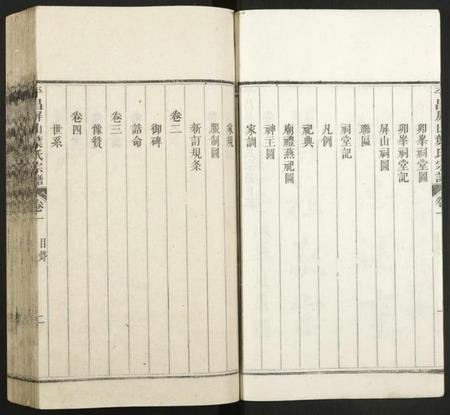 平昌屏山葉氏宗譜 卷一
卯峯祠堂圖
卯峯祠堂記
屏山祠圖
聯匾
祠堂記
凡例
祀典
廟禮燕祀圖
神王圖
家訓
家規
服制圖
新訂規条
卷二
御碑
誥命
卷三
像贊
卷四
世系
平昌屏山葉氏宗譜 卷一 目錄 二